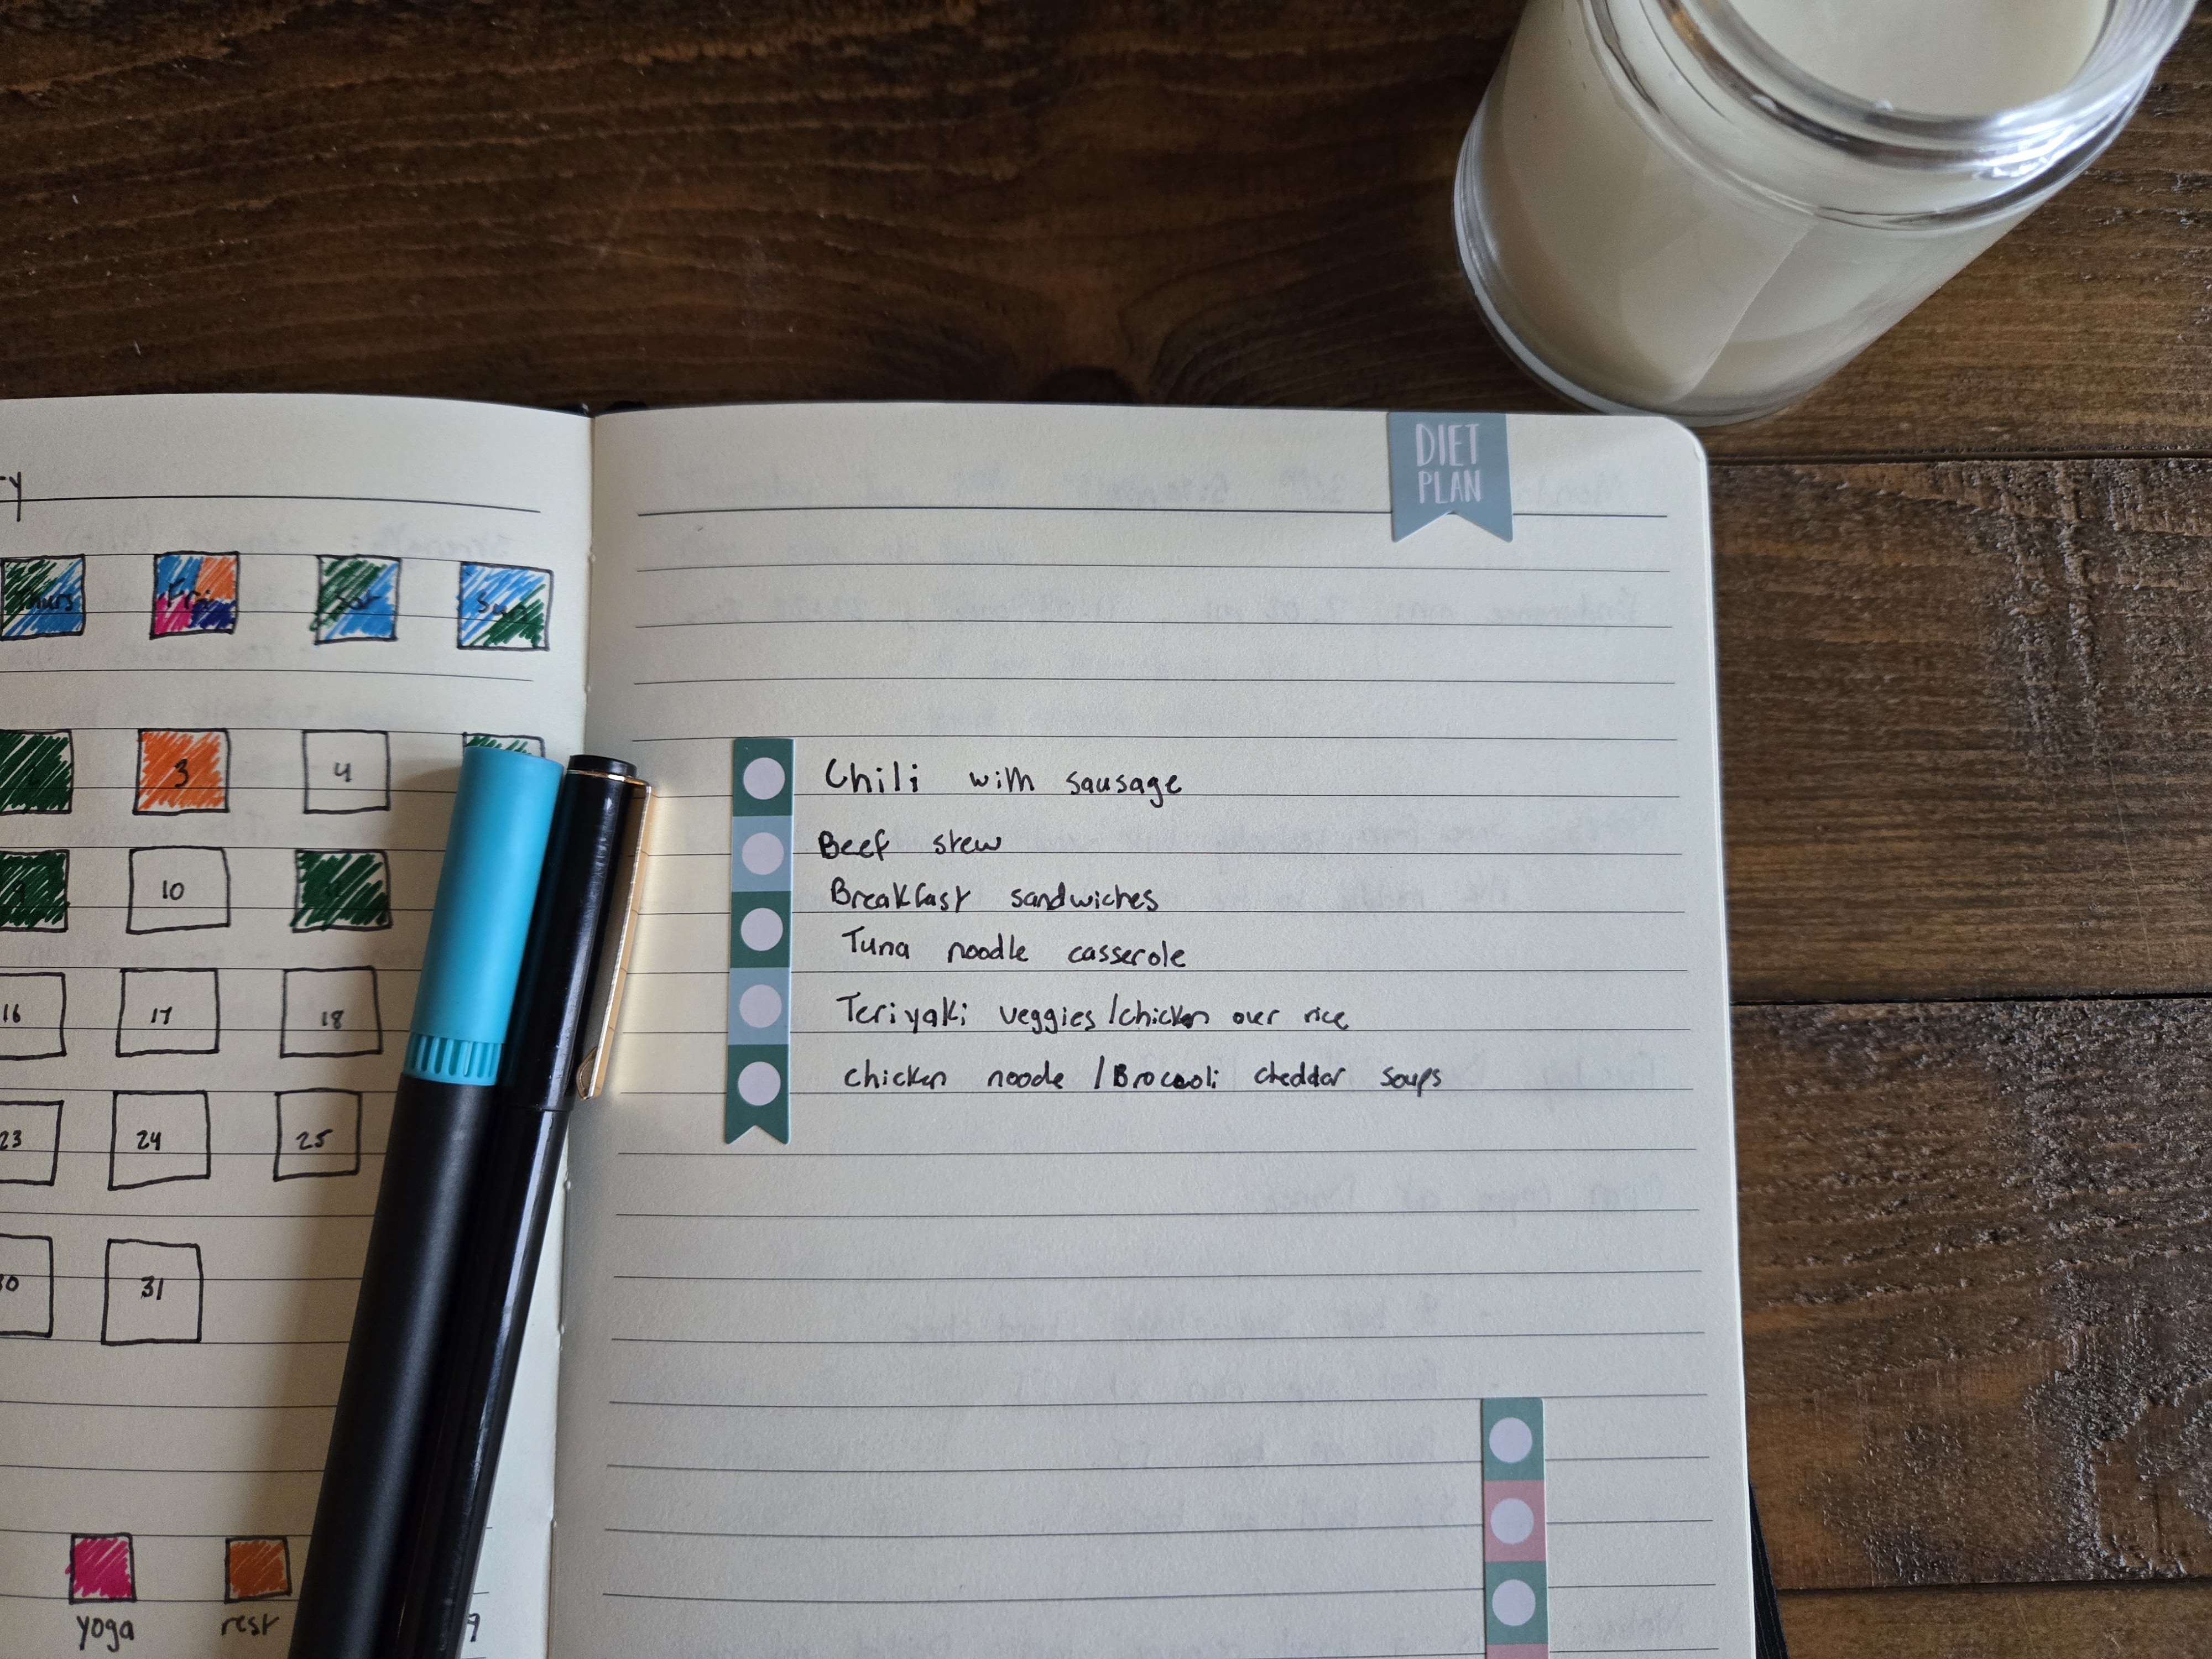 y
Thurs Fri Sat Sun
3 4
10
16 17 18
23 24 25
30 31
yoga rest
DIET
PLAN
Chili with sausage
Beef stew
Breakfast sandwiches
Tuna noodle casserole
Teriyaki veggies/chicken over rice
chicken noodle / Broccoli cheddar soups